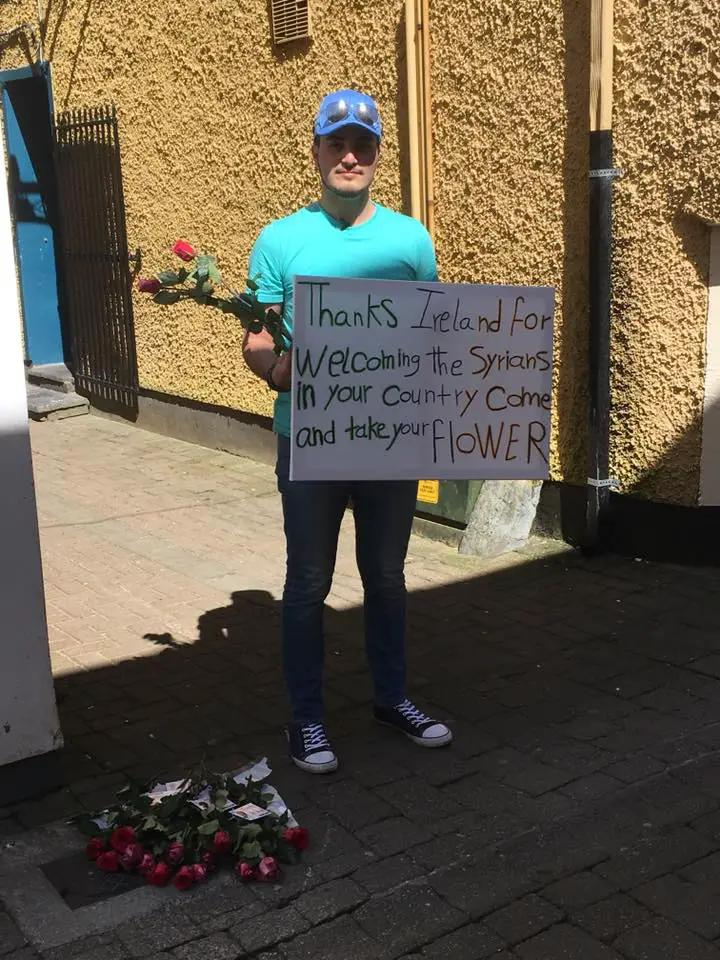 Thanks Ireland for
Welcoming the Syrians
in your Country Come
and take your FlOWER